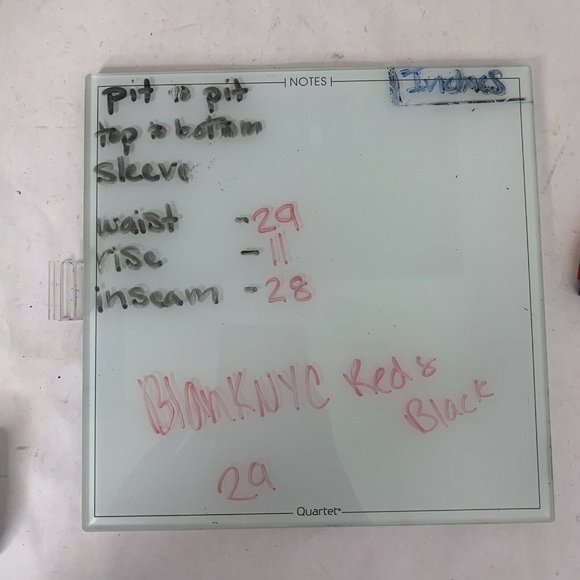 NOTES
Inches
pit to pit
top to bottom
sleeve
waist - 29
rise - 11
inseam - 28
BlankNYC Red &
Black
29
Quartet®